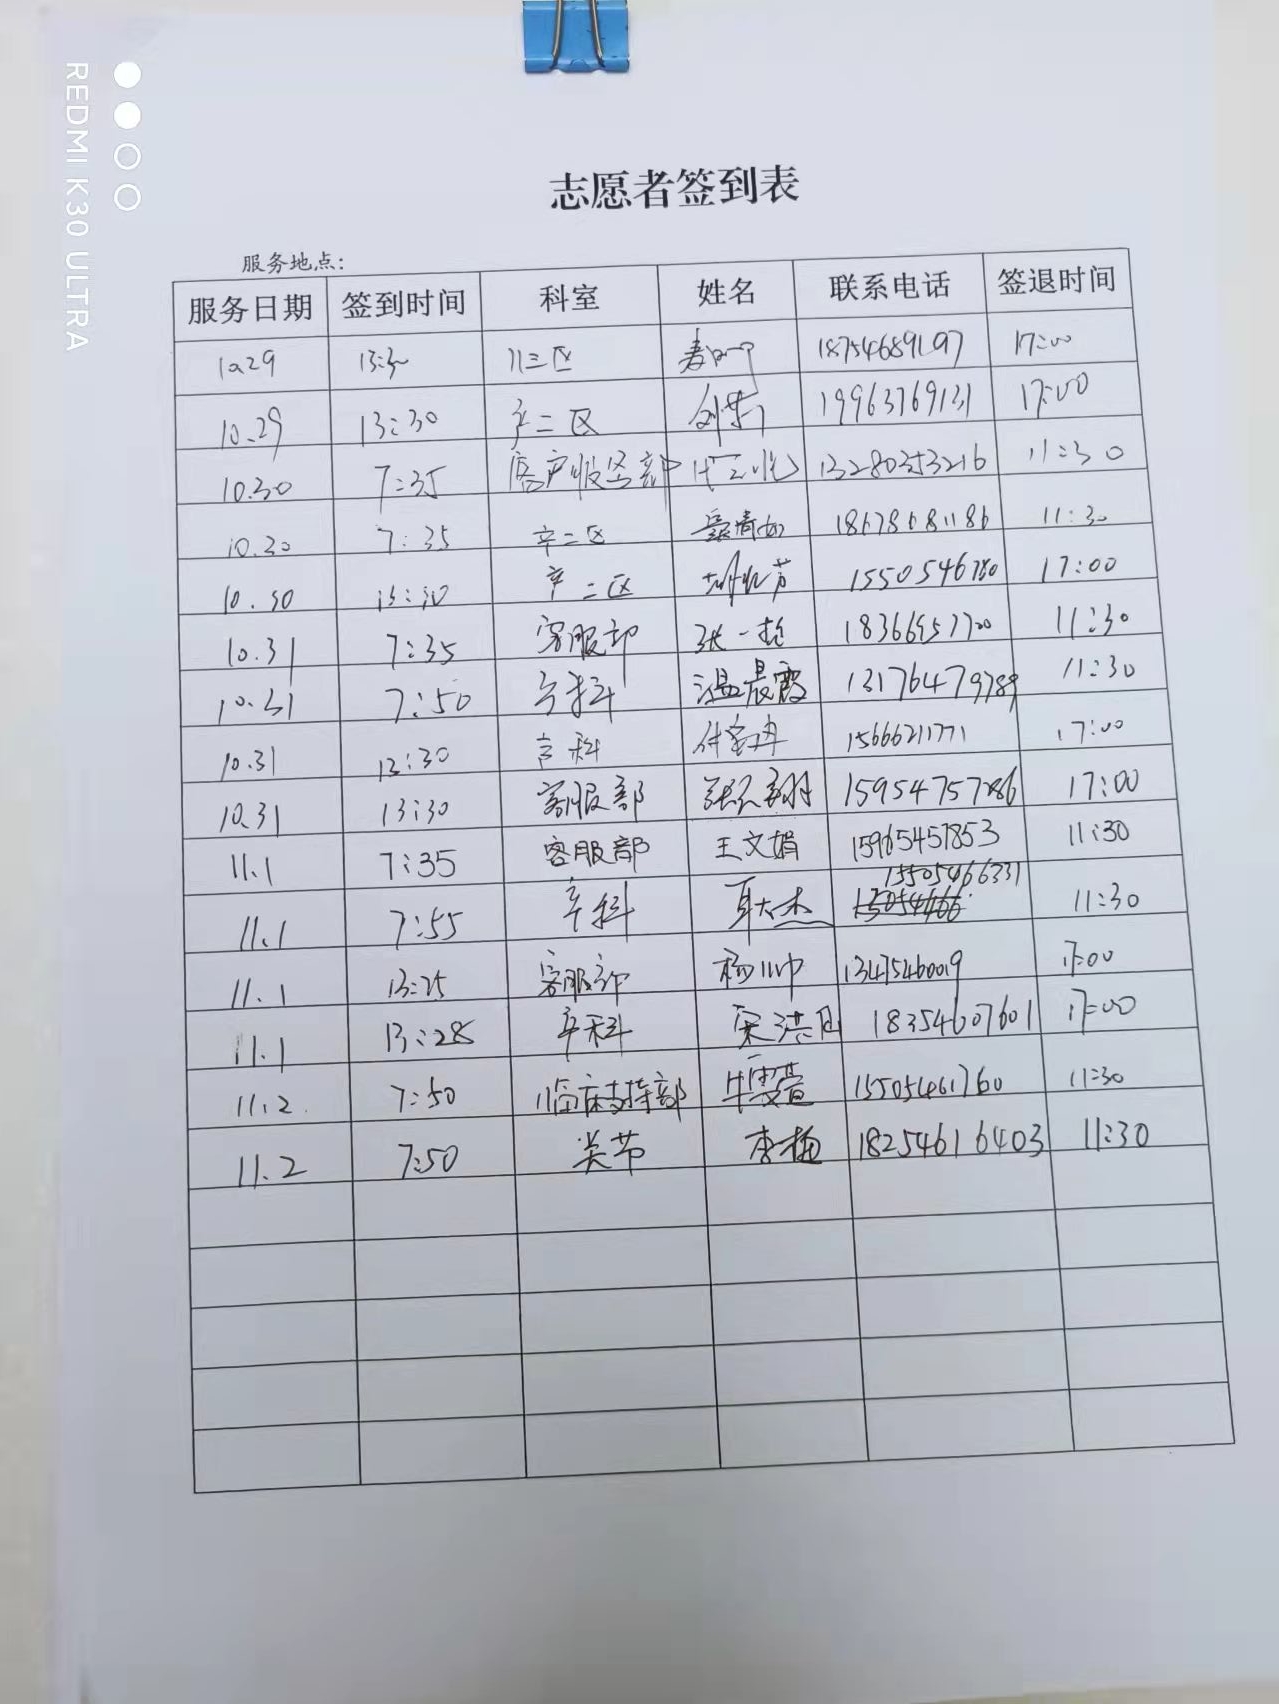 REDMI K30 ULTRA
志愿者签到表
服务地点:
服务日期 签到时间 科室 姓名 联系电话 签退时间
10.29 13:30 儿三区 18754689197 17:00
10.29 13:30 产二区 17:00
10.30 7:35 客户服务部 13280353216 11:30
10.30 7:35 产二区 18678681186 11:30
10.30 13:30 产二区 1550546780 17:00
10.31 7:35 客服部 张一 18366957700 11:30
10.31 7:50 产科 温晨霞 13176479789 11:30
10.31 13:30 产科 15666211771 17:00
10.31 13:30 客服部 15954757286 17:00
11.1 7:35 客服部 王文娟 15965457853 11:30
11.1 7:55 产科 15505466331 11:30
11.1 13:25 客服部 杨川帅 13475460019 17:00
11.1 13:28 产科 宋洪月 18354607601 17:00
11.2 7:50 临床支持部 牛雯萱 15505461760 11:30
11.2 7:50 关节 李梅 18254616403 11:30